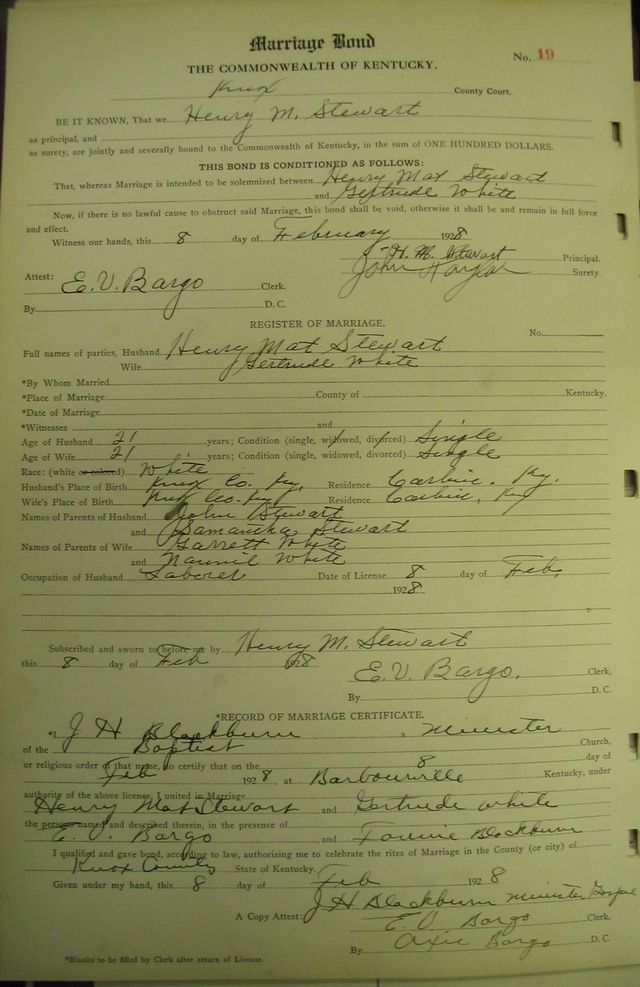 Marriage Bond
No. 19
THE COMMONWEALTH OF KENTUCKY.
Knox County Court.
BE IT KNOWN, That we Henry M. Stewart
as principal, and
as surety, are jointly and severally bound to the Commonwealth of Kentucky, in the sum of ONE HUNDRED DOLLARS.
THIS BOND IS CONDITIONED AS FOLLOWS:
That, whereas Marriage is intended to be solemnized between Henry Mat Stewart
and Gertrude White
Now, if there is no lawful cause to obstruct said Marriage, this bond shall be void, otherwise it shall be and remain in full force
and effect.
Witness our hands, this 8 day of February 1928
H. M. Stewart Principal.
John Surety.
Attest: E. V. Bargo Clerk.
By D. C.
REGISTER OF MARRIAGE.
No.
Full names of parties, Husband Henry Mat Stewart
Wife Gertrude White
*By Whom Married
*Place of Marriage County of Kentucky.
*Date of Marriage
*Witnesses and
Age of Husband 21 years; Condition (single, widowed, divorced) Single
Age of Wife 21 years; Condition (single, widowed, divorced) Single
Race: (white or colored) White
Husband's Place of Birth Knox Co. Ky. Residence Ky.
Wife's Place of Birth Knox Co. Ky Residence Ky
Names of Parents of Husband John Stewart
and Samantha Stewart
Names of Parents of Wife Garrett White
and White
Occupation of Husband Laborer Date of License 8 day of Feb.
1928
Subscribed and sworn to before me by Henry M. Stewart
this 8 day of Feb 1928
E. V. Bargo. Clerk,
By D. C.
*RECORD OF MARRIAGE CERTIFICATE.
*I J H Blackburn, a Minister
of the Baptist Church,
or religious order of that name, do certify that on the 8 day of
Feb 1928, at Barbourville Kentucky, under
authority of the above license, I united in Marriage
Henry Mat Stewart and Gertrude White
the persons named and described therein, in the presence of
E. V. Bargo and Blackburn
I qualified and gave bond, according to law, authorizing me to celebrate the rites of Marriage in the County (or city) of
Knox County State of Kentucky.
Given under my hand, this 8 day of Feb 1928
J H Blackburn Minister
A Copy Attest: E. V. Bargo Clerk,
By Bargo D. C.
*Blanks to be filled by Clerk after return of License.